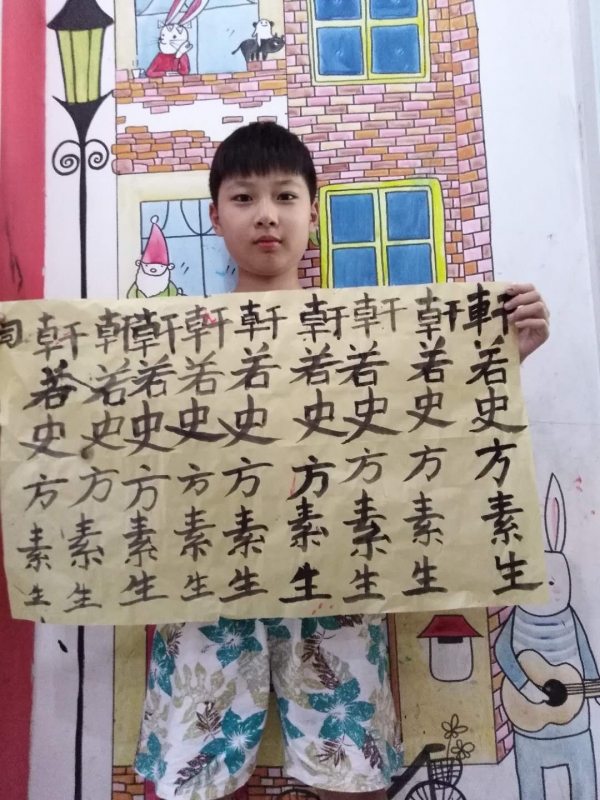 軒若史方素生
軒若史方素生
軒若史方素生
軒若史方素生
軒若史方素生
軒若史方素生
軒若史方素生
軒若史方素生
軒若史方素生